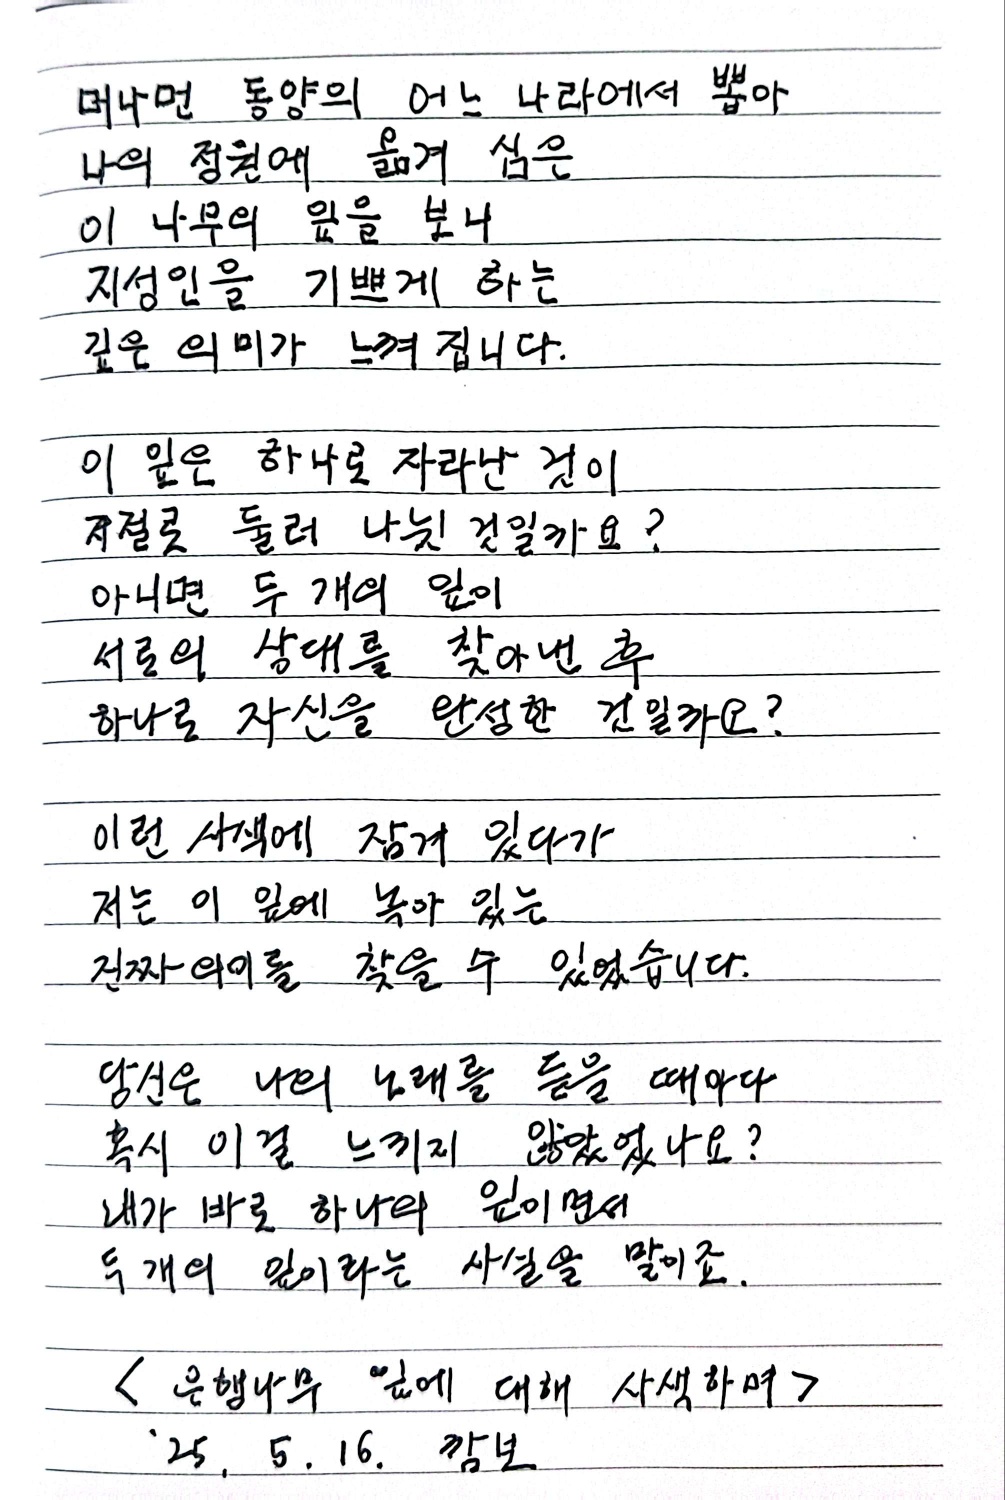 머나먼 동양의 어느 나라에서 뽑아
나의 정원에 옮겨 심은
이 나무의 잎을 보니
지성인을 기쁘게 하는
깊은 의미가 느껴집니다.
이 잎은 하나로 자라난 것이
저절로 둘러 나뉫 것일까요?
아니면 두 개의 잎이
서로의 상대를 찾아낸 후
하나로 자신을 완성한 건일까요?
이런 사색에 잠겨 있다가
저는 이 잎에 녹아 있는
진짜 의미를 찾을 수 있었습니다.
당신은 나의 노래를 듣을 때마다
혹시 이걸 느끼지 않았었나요?
내가 바로 하나의 잎이면서
두 개의 잎이라는 사실을 말이죠.
<은행나무 잎에 대해 사색하며>
'25. 5. 16. 깜보